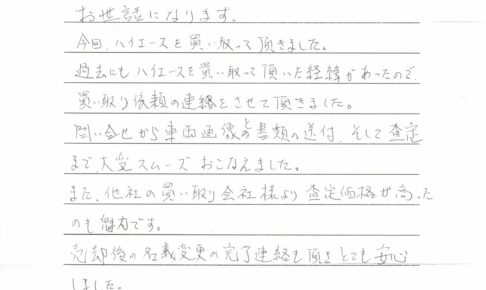 お世話になります。
今回、ハイエースを買い取って頂きました。
過去にもハイエースを買い取って頂いた経緯があったので、
買い取り依頼の連絡をさせて頂きました。
問い合せから車両画像と書類の送付、そして査定
まで、大変スムーズおこなえました。
また、他社の買い取り会社様より査定価格が高った
のも魅力です。
売却後の名義変更の完了連絡も頂きとても安心
しました。